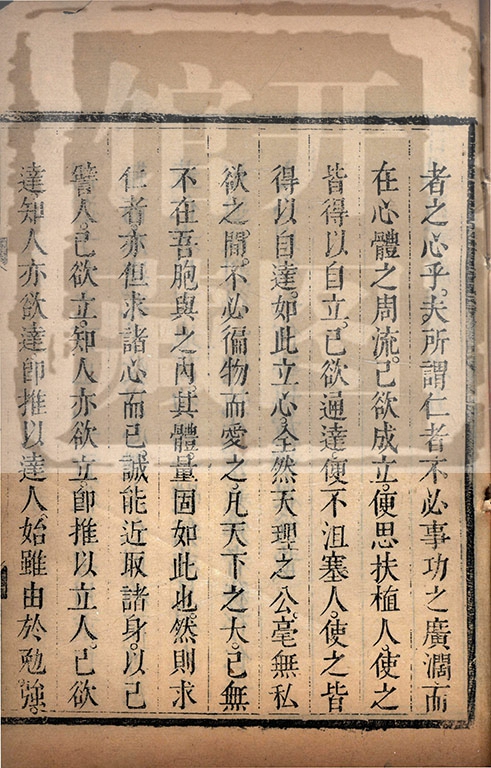 者之心乎。夫所謂仁者不必事功之廣濶而
在心體之周流。己欲成立。便思扶植人。使之
皆得以自立。己欲通達。便不沮塞人。使之皆
得以自達。如此立心。全然天理之公。毫無私
欲之間。不必徧物而愛之。凡天下之大。己無
不在吾胞與之內。其體量固如此也。然則求
仁者。亦但求諸心而已。誠能近取諸身。以己
譬人。己欲立。知人亦欲立。卽推以立人。己欲
達知人亦欲達卽推以達人。始雖由於勉強。